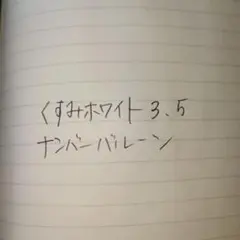 くすみホワイト 3、5
ナンバーバルーン